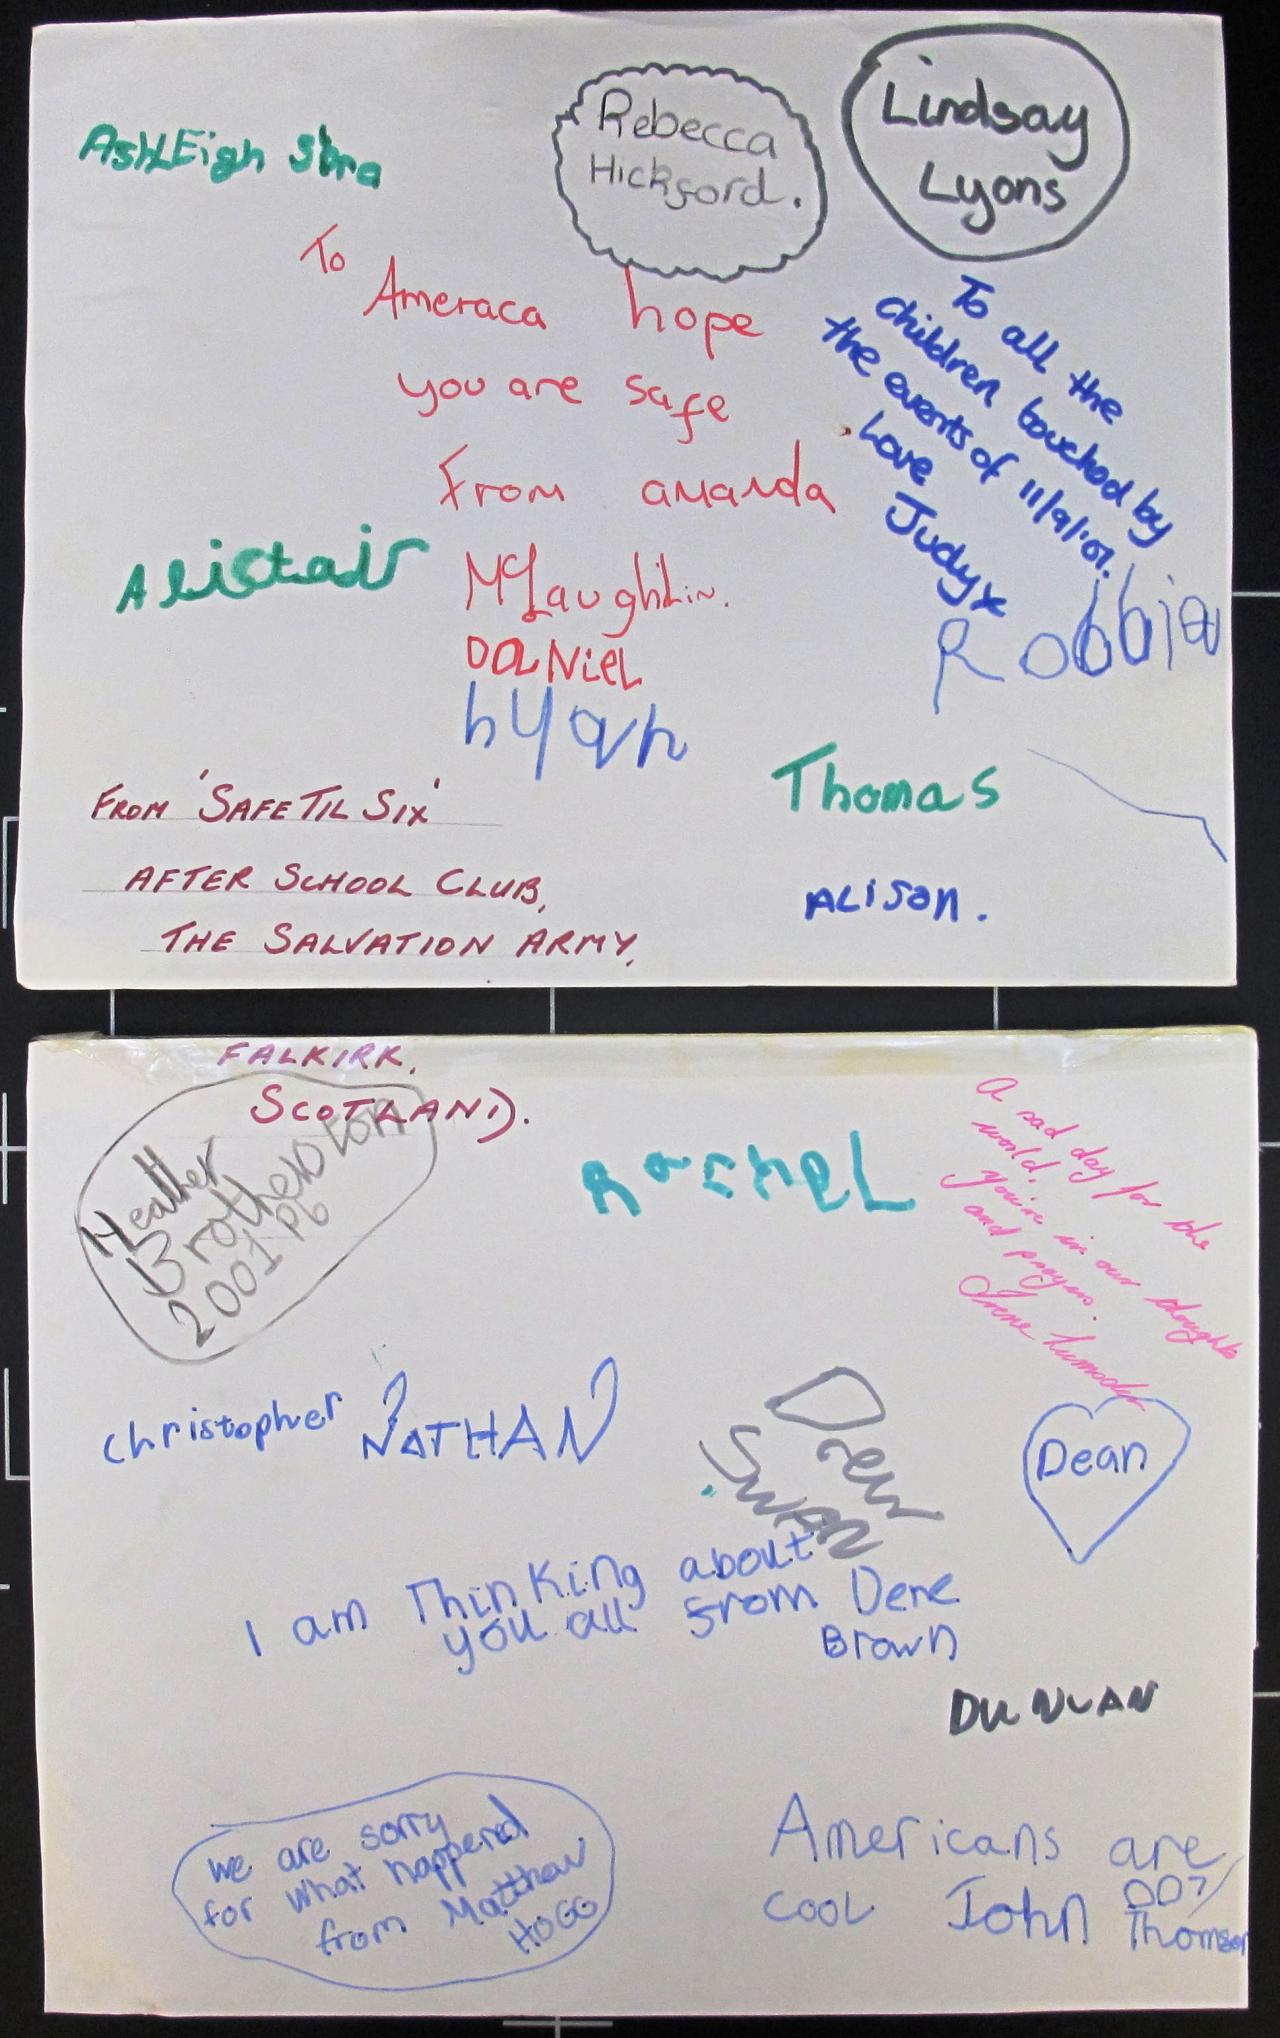 Rebecca
Hicksford.
Lindsay
Lyons
AsHLEigh
To
Ameraca hope
you are safe
From amanda
McLaughLin.
DaNieL
To all the
children touched by
the events of 11/9/'01.
Love
Judy x
Alistair
Robbie
Thomas
ALiSon.
FROM 'SAFE TIL SIX'
AFTER SCHOOL CLUB,
THE SALVATION ARMY,
FALKIRK,
SCOTLAND).
Heather
Brotherston
2001 P6
RachEL
A sad day for the
world.
You're in our thoughts
and prayers.
christopher
NATHAN
Drew
SWAN
Dean
I am Thinking about
you all from Dene
Brown
DUNCAN
we are sorry
for what happened
from Matthew
HOGG
Americans are
cooL John 007
Thomson